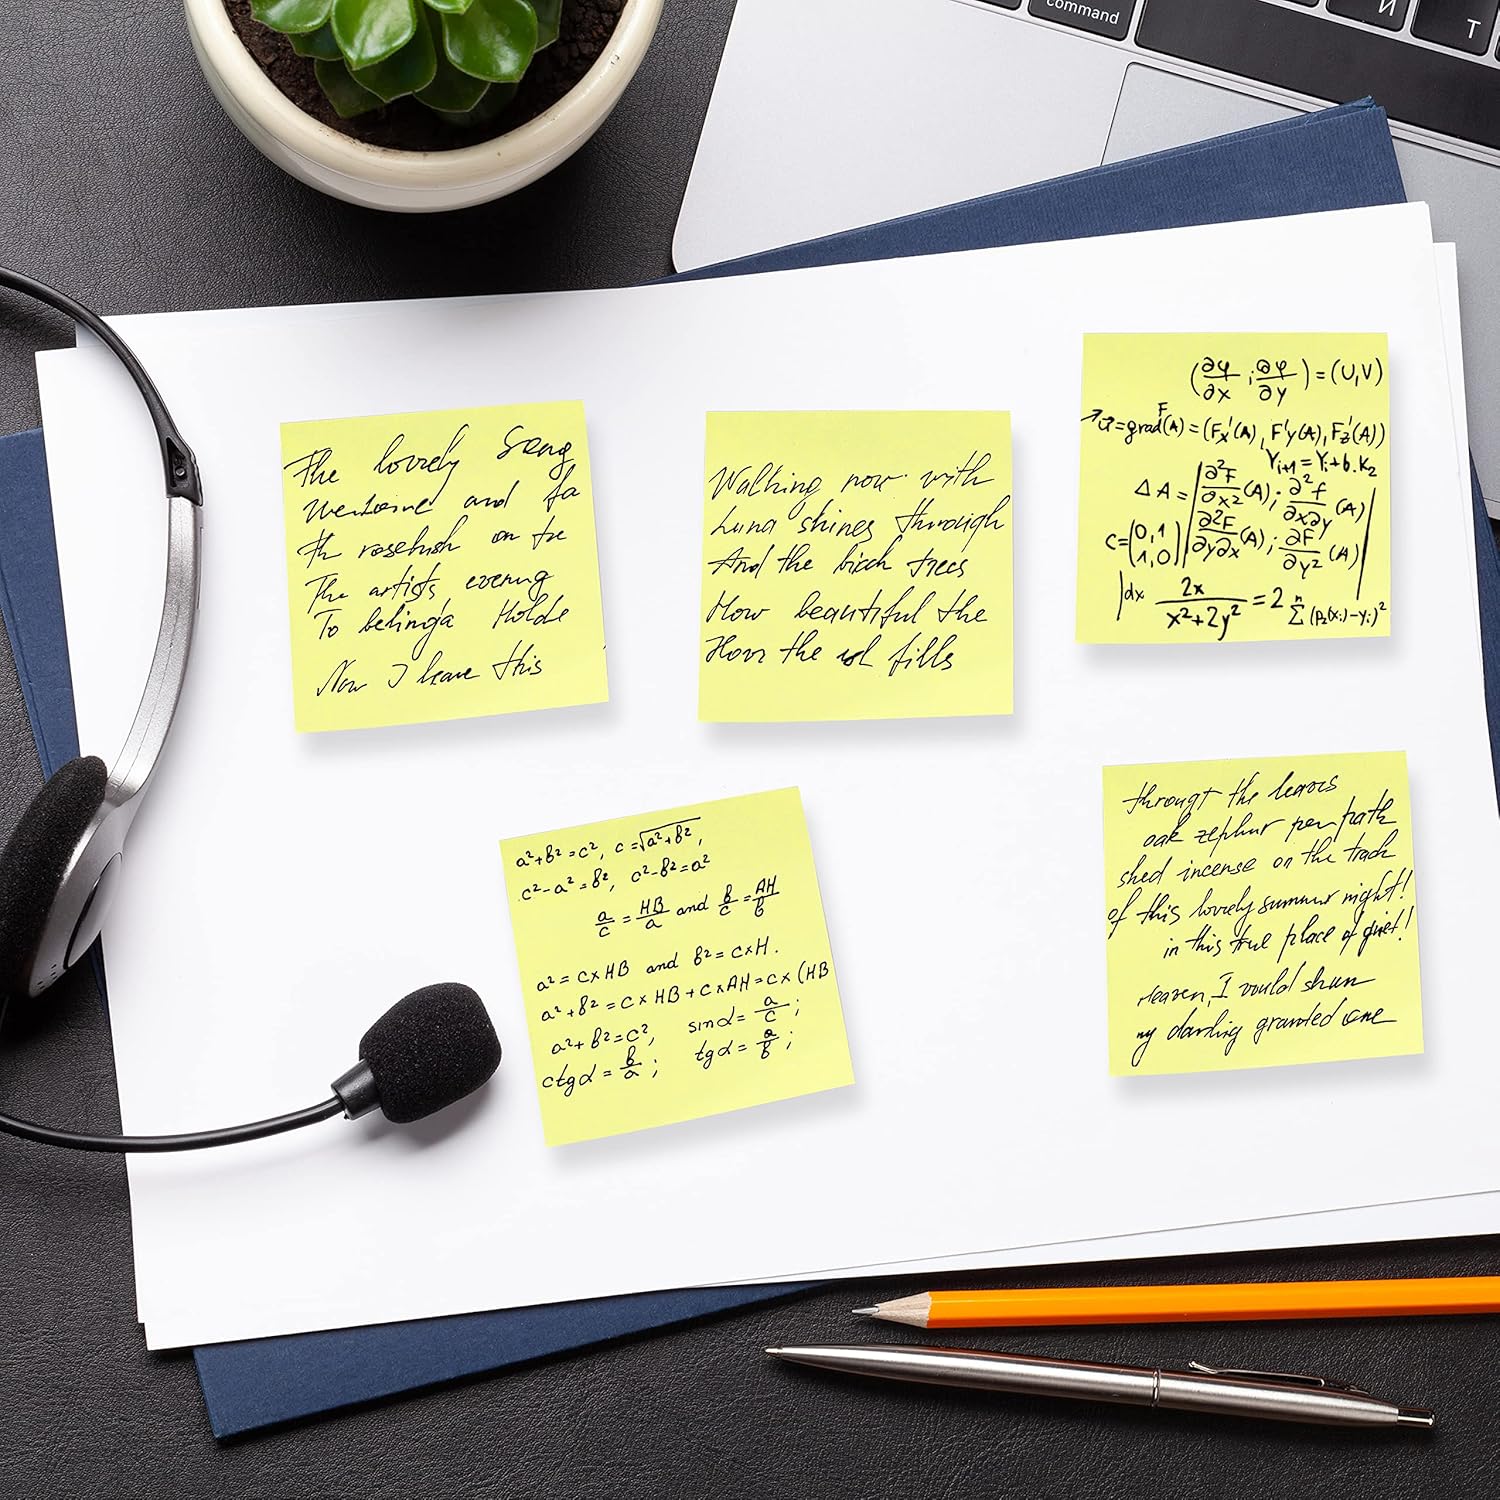 command
И
Т
The lovely Song
and
rosebush on
The artists
To
Now I leave this
Walking now with
Luna shines through
And the birch trees
How beautiful the
the fills
(∂φ/∂x ; ∂φ/∂y) = (U,V)
u = grad F(A) = (Fx'(A), F'y(A), Fz'(A))
Yi+1 = Yi + b.K2
ΔA = | ∂²F/∂x² (A); ∂²f/∂x∂y (A)
C = (0,1 1,0) ∂²F/∂y∂x (A); ∂F/∂y² (A) |
|dx 2x/x²+2y² = 2 Σn (p2(xi)-yi)²
a²+b²=c², c=√a²+b²,
c²-a²=b², c²-b²=a²
a/c = HB/a and b/c = AH/b
a²=c×HB and b²=c×H.
a²+b²=c×HB+c×AH=c×(HB
a²+b²=c², sinα=a/c;
ctgα=b/a; tgα=a/b;
the leaves
oak zephyr path
shed incense on the track
of this lovely summer night!
in this true place of quiet!
Heaven, I would shun
my darling granted one